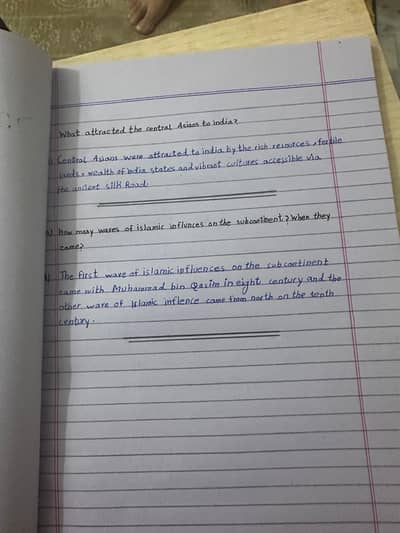 What attracted the central Asians to india?
Central Asians were attracted to india by the rich resources, fertile
lands, wealth of India states and vibrant cultures accessible via
the ancient silk Road.
how many waves of islamic inflvnces on the subcontinent? When they
came?
The first wave of islamic influences on the subcontinent
came with Muhammad bin Qasim in eight century and the
other wave of Islamic inflence came from north on the tenth
century.